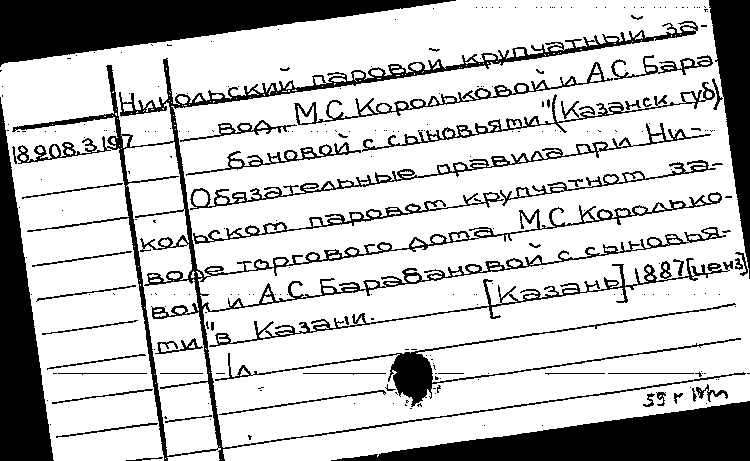 Никольский паровой крупчатный за-
вод „М.С. Корольковой и А.С. Бара-
18.208.3.197
бановой с сыновьями." (Казанск. губ)
Обязательные правила при Ни-
кольском паровом крупчатном за-
воде торгового дома „М.С. Королько-
вой и А.С. Барабановой с сыновья-
ми" в Казани. [Казань], 1887 [ценз]
1 л.